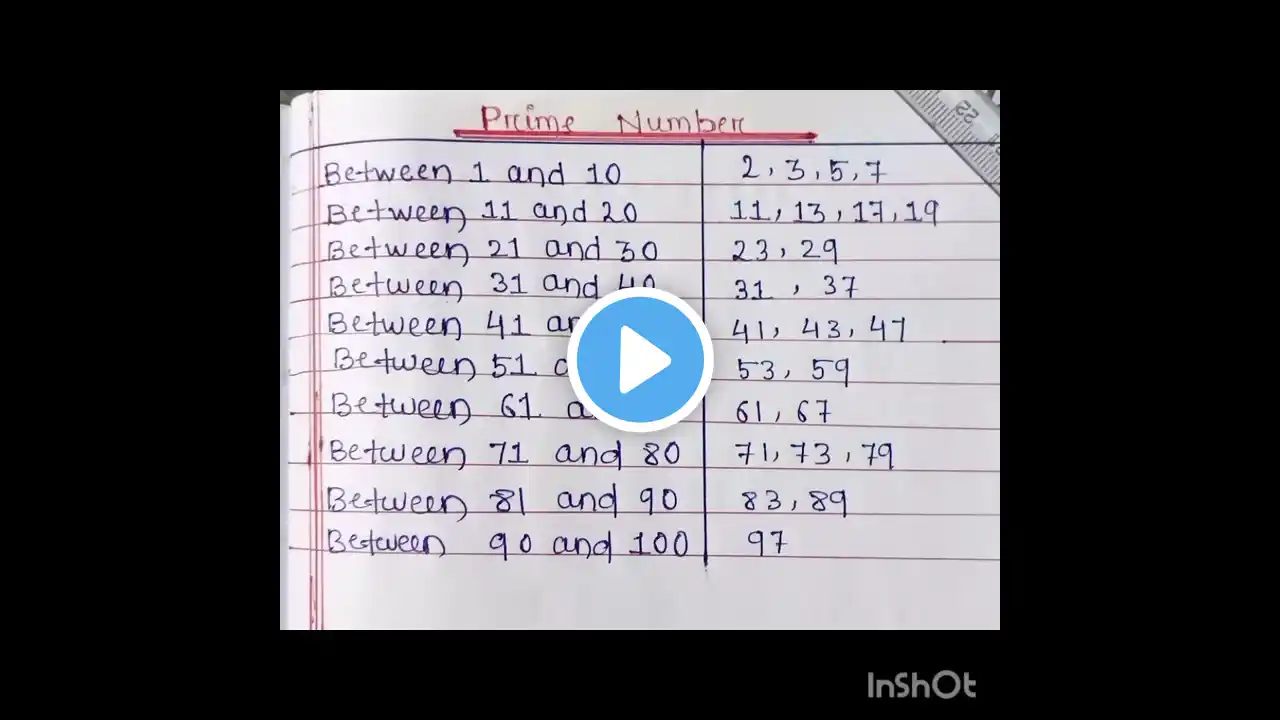 Prime Number
Between 1 and 10 2, 3, 5, 7
Between 11 and 20 11, 13, 17, 19
Between 21 and 30 23, 29
Between 31 and 40 31, 37
Between 41 41, 43, 47
Between 51 53, 59
Between 61 61, 67
Between 71 and 80 71, 73, 79
Between 81 and 90 83, 89
Between 90 and 100 97
InShOt